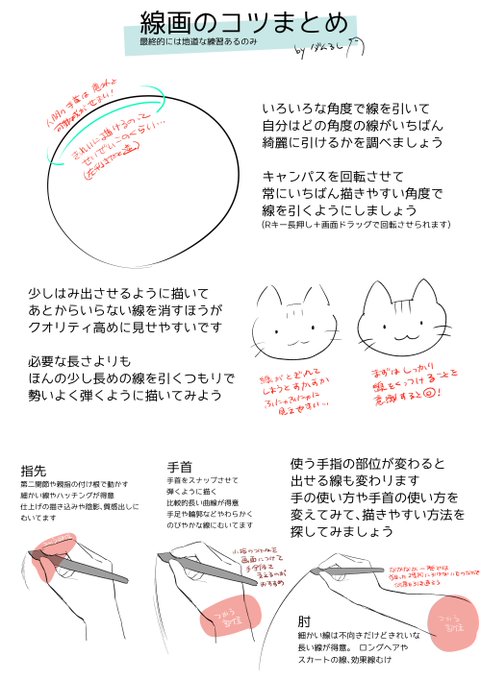 線画のコツまとめ
最終的には地道な練習あるのみ
by ぶんるし
いろいろな角度で線を引いて
自分はどの角度の線がいちばん
綺麗に引けるかを調べましょう
キャンバスを回転させて
常にいちばん描きやすい角度で
線を引くようにしましょう
(Rキー長押し＋画面ドラッグで回転させられます)
少しはみ出させるように描いて
あとからいらない線を消すほうが
クオリティ高めに見せやすいです
必要な長さよりも
ほんの少し長めの線を引くつもりで
勢いよく弾くように描いてみよう
線がとぎれて
しまうとすかすか
ふにゃふにゃに
見えやすい…
まずはしっかり
線をくっつけることを
意識すると◎!
使う手指の部位が変わると
出せる線も変わります
手の使い方や手首の使い方を
変えてみて、描きやすい方法を
探してみましょう
指先
第二関節や親指の付け根で動かす
細かい線やハッチングが得意
仕上げの描き込みや陰影、質感出しに
むいてます
手首
手首をスナップさせて
弾くように描く
比較的長い曲線が得意
手足や輪郭などやわらかく
のびやかな線にむいてます
つかう
部位
つかう
部位
肘
細かい線は不向きだけどきれいな
長い線が得意。 ロングヘアや
スカートの線、効果線むけ